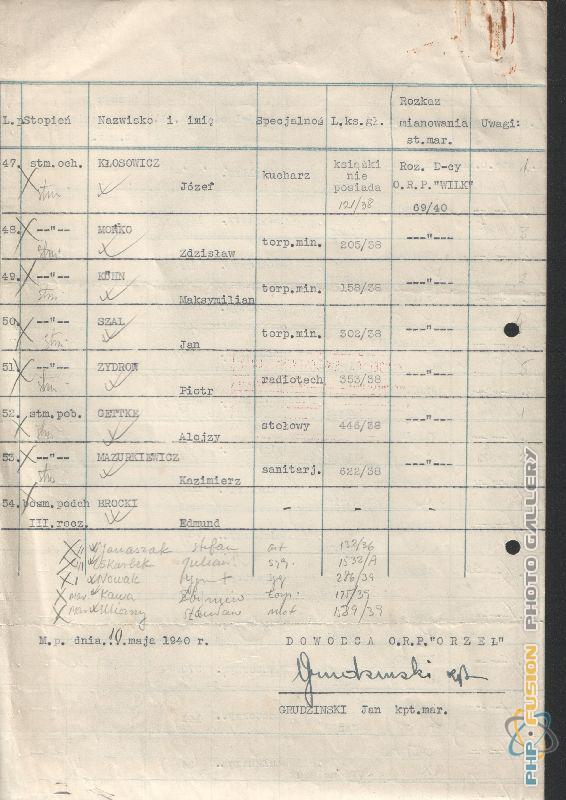 L.p. Stopień Nazwisko i imię Specjalnoś L.ks.gł. Rozkaz mianowania st.mar. Uwagi:
47. stm.och. KŁOSOWICZ Józef kucharz książki nie posiada 121/38 Roz. D-cy O.R.P."WILK" 69/40 1
stm
48. --"-- MOŃKO Zdzisław torp.min. 205/38 ---"--- 3
stm
49. --"-- KÜHN Maksymilian torp.min. 158/38 ---"--- 2
stm
50. --"-- SZAL Jan torp.min. 302/38 ---"---
stm
51. --"-- ZYDROŃ Piotr radiotech 353/38 ---"--- 5
stm
52. stm.pob. GETTKE Alojzy stołowy 446/38 ---"--- 1
stm
53. --"-- MAZURKIEWICZ Kazimierz sanitarj. 622/38 ---"---
stm
54. bosm.podch III.rocz. BROCKI Edmund - - -
II Janaszak Stefan art 132/36
III Skarbek Julian syg. 1532/A
I Nowak 286/39
mar Kawa Zbigniew torp. 175/39
mar Ulliarny Stanisław mot 1539/39
M.p. dnia.10.maja 1940 r. D O W O D C A O.R.P."ORZEŁ"
Grudziński kpt.
GRUDZINSKI Jan kpt.mar.
PHP-FUSION PHOTO GALLERY